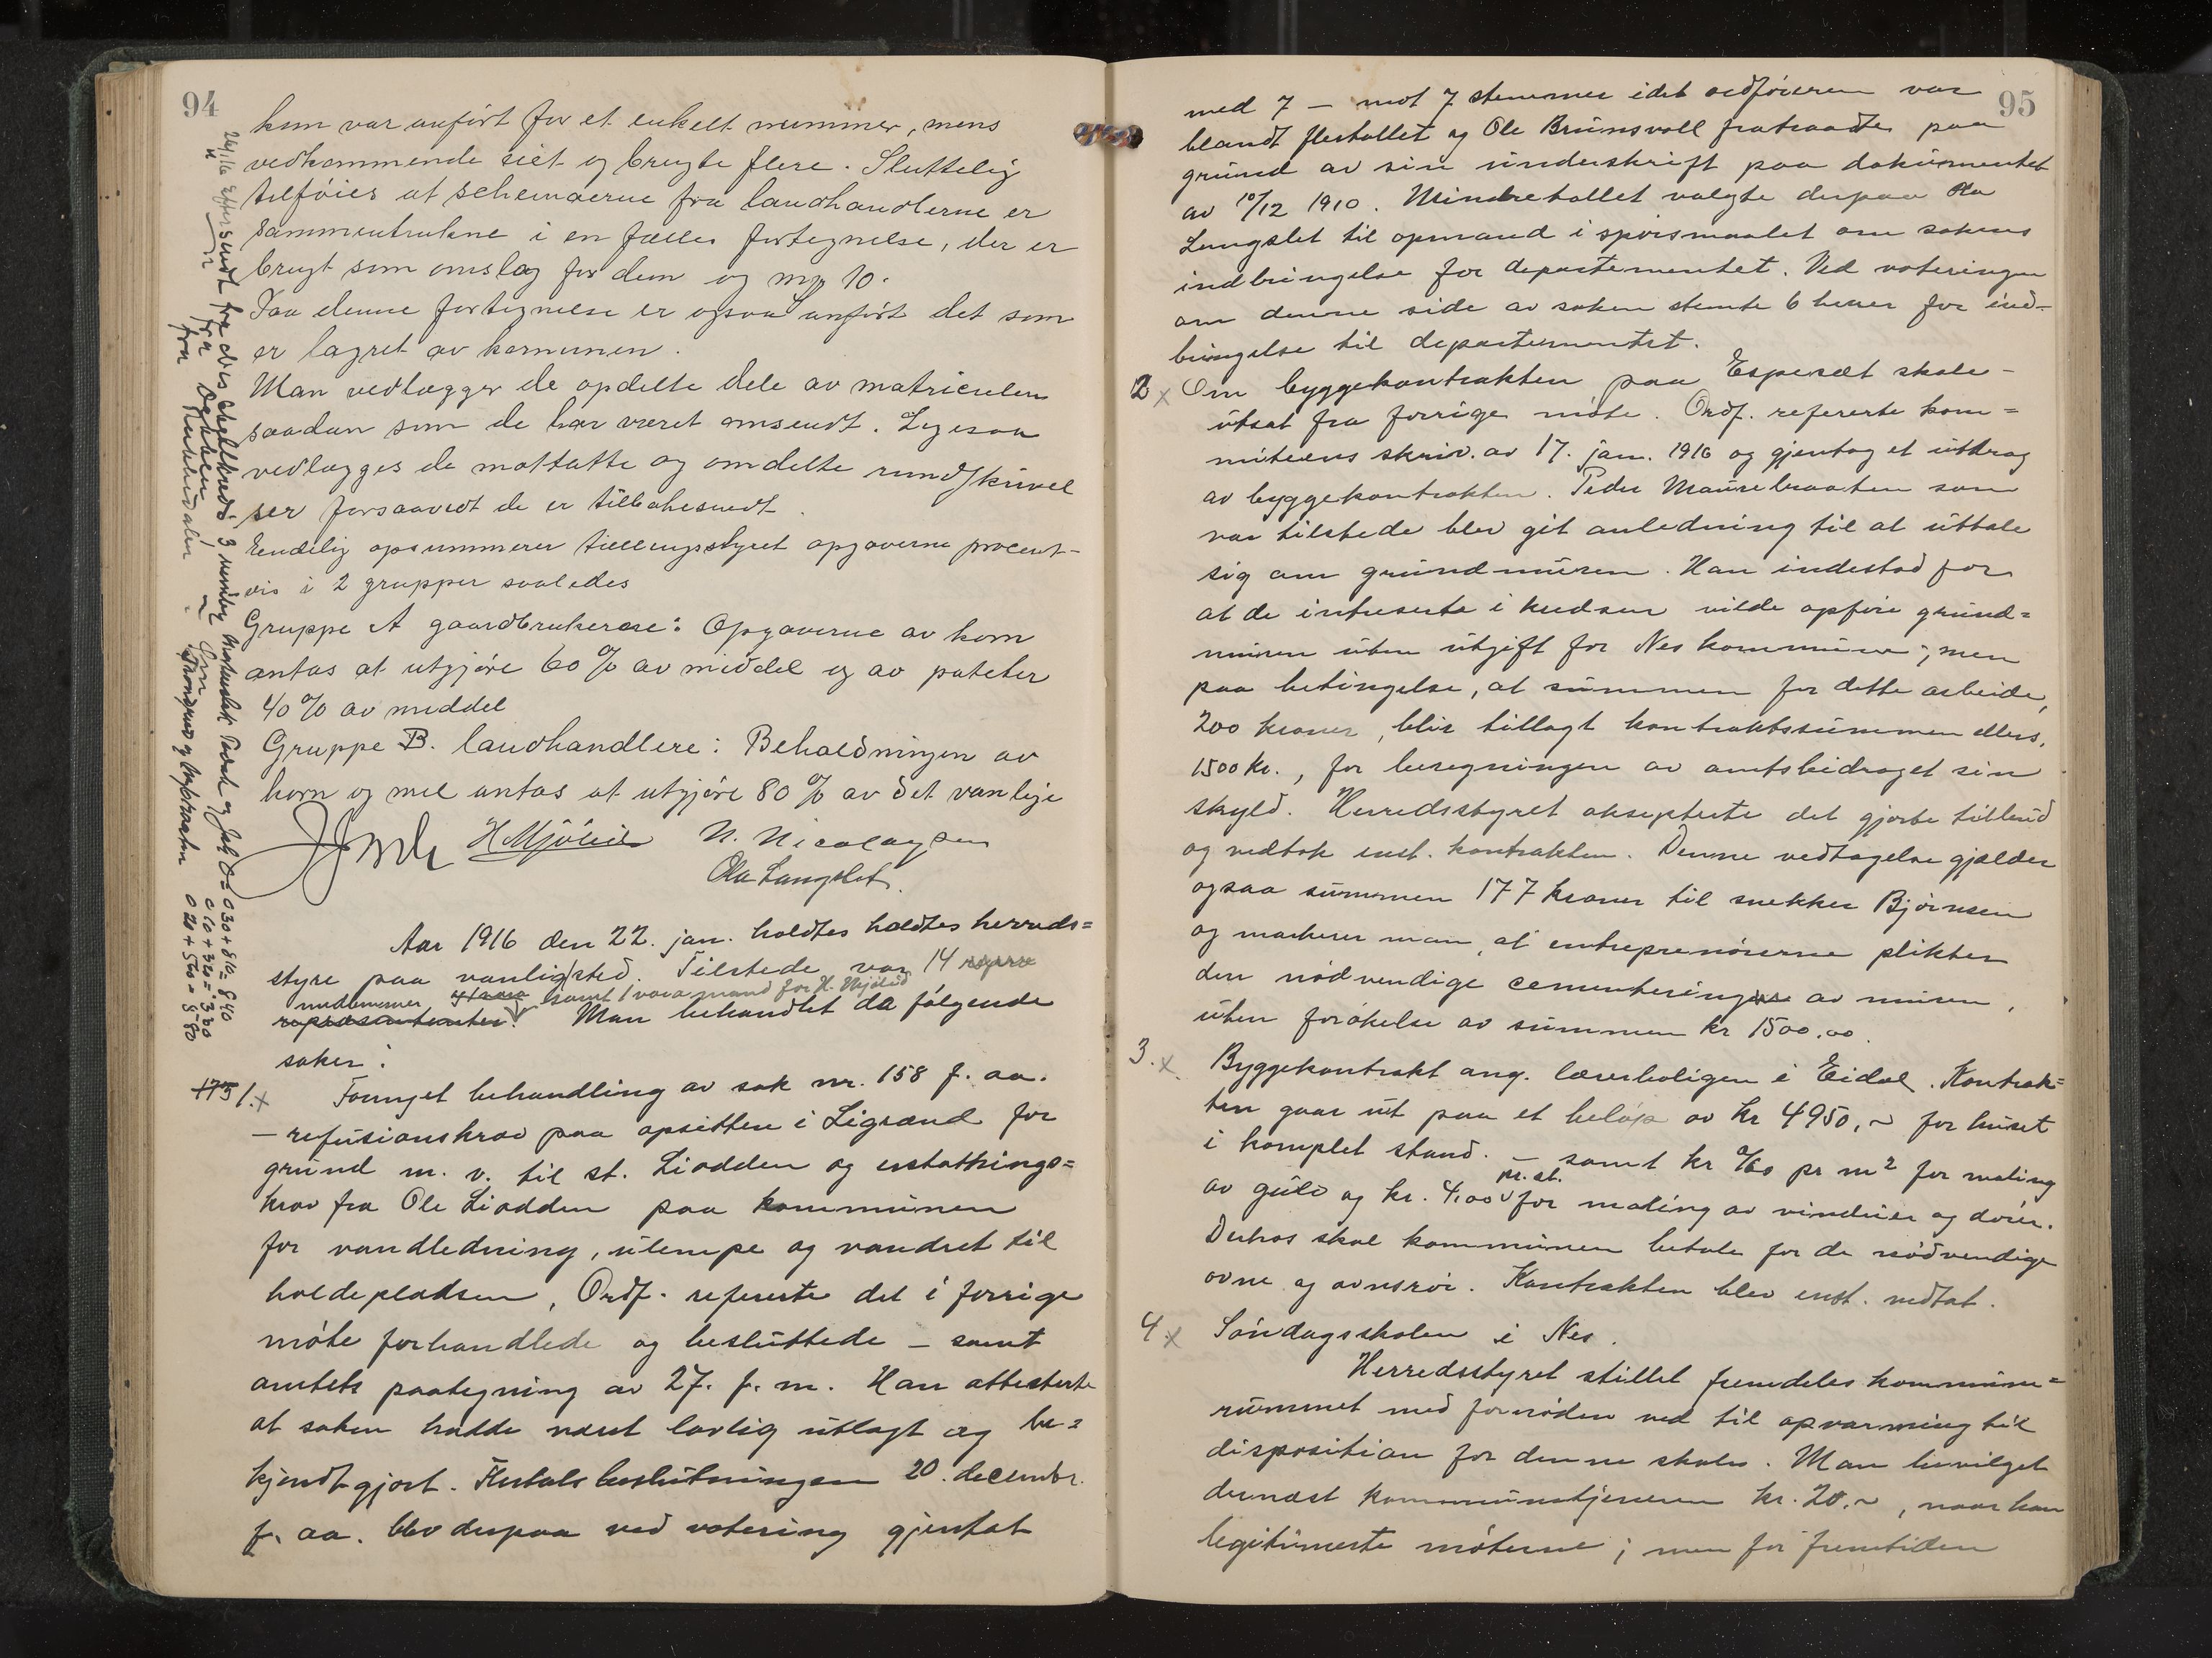 94
kun var anført for et enkelt nummer, mens
vedkommende eiet og brugte flere. Sluttelig
tilføies at schemaerne fra landhandlerne er
sammentrukne i en fælles fortegnelse, der er
brugt som omslag for dem og mrk 10.
Paa denne fortegnelse er ogsaa anført det som
er lagret av komunen.
Man vedlægger de opdelte dele av matriculen
saadan som de har været omsendt. Ligesaa
vedlægges de mottatte og omdelte rundskrivel
ser forsaavidt de er tilbakesendt.
Endelig opsummerer tællingsstyret opgaverne procent-
vis i 2 grupper saaledes
Gruppe A gaardbrukerne: Opgaverne av korn
antas at utgjøre 60 % av middel og av poteter
40 % av middel
Gruppe B. landhandlere: Beholdningen av
korn og mel antas at utgjøre 80 % av det vanlige
H Mjølid N. Nicolaysen
Ola Langslet.
Aar 1916 den 22. jan. holdtes holdtes herreds=
styre paa vanlig sted. Tilstede var 14 repræ
medlemmer, samt 1 varamand for H. Mjølid
repræsentanter. Man behandlet da følgende
saker:
175 1. x Fornyet behandling av sak nr. 158 f. aa.
– refusionskrav paa opsittere i Ligrænd for
grund m. v. til st. Liodden og erstatnings=
krav fra Ole Liodden paa kommunen
for vandledning, ulempe og vandret til
holdepladsen, Ordf. refererte det i forrige
møte forhandlede og besluttede – samt
amtets paategning av 27. f. m. Han attesterte
at saken hadde været lovlig utlagt og be=
kjendtgjort. Flertalsbeslutningen 20. decembr.
f. aa. blev derpaa ved votering gjentat
95
med 7 – mot 7 stemmer idet ordføreren var
blandt flertallet og Ole Brunsvoll fratraadte paa
grund av sin underskrift paa dokumentet
av 10/12 1910. Mindretallet valgte derpaa Ola
Langslet til opmand i spørsmaalet om sakens
indbringelse for departementet. Ved voteringen
om denne side av saken stemte 6 herrer for ind-
bringelse til departementet.
2 x Om byggekontrakten paa Espeset skole –
utsat fra forrige møte. Ordf. refererte kom=
miteens skriv. av 17. jan. 1916 og gjentog et utdrag
av byggekontrakten. Peder Maurebraaten som
var tilstede blev git anledning til at uttale
sig om grundmuren. Han indestod for
at de intreserte i kredsen vilde opføre grund=
muren uten utgift for Nes kommune; men
paa betingelse, at summen for dette arbeide,
200 kroner, blir tillagt kontraktssummen ellers,
1500 kr., for beregningen av amtsbidraget sin
skyld. Herredsstyret aksepterte det gjorte tilbud
og vedtok enst. kontrakten. Denne vedtagelse gjælder
ogsaa summen 177 kroner til snekker Bjørnsen
og markerer man, at entreprenørerne plikter
den nødvendige cementering av muren,
uten forøkelse av summen kr 1500.00.
3. x Byggekontrakt ang. lærerboligen i Eidal. Kontrak=
ten gaar ut paa et beløp av kr 4950,~ for huset
i komplet stand. – samt kr 0/60 pr m² for maling
pr. st.
av gulv og kr. 4,00 for maling av vinduer og dører.
Derhos skal kommunen betale for de nødvendige
ovne og ovnsrør. Kontrakten blev enst. vedtat.
4. x Søndagsskolen i Nes.
Herredsstyret stillet fremdeles kommune=
rummet med fornøden ved til opvarming til
disposition for denne skole. Man bevilget
dernæst kommunetjeneren kr. 20.~, naar han
legitimerte møterne; men for fremtiden